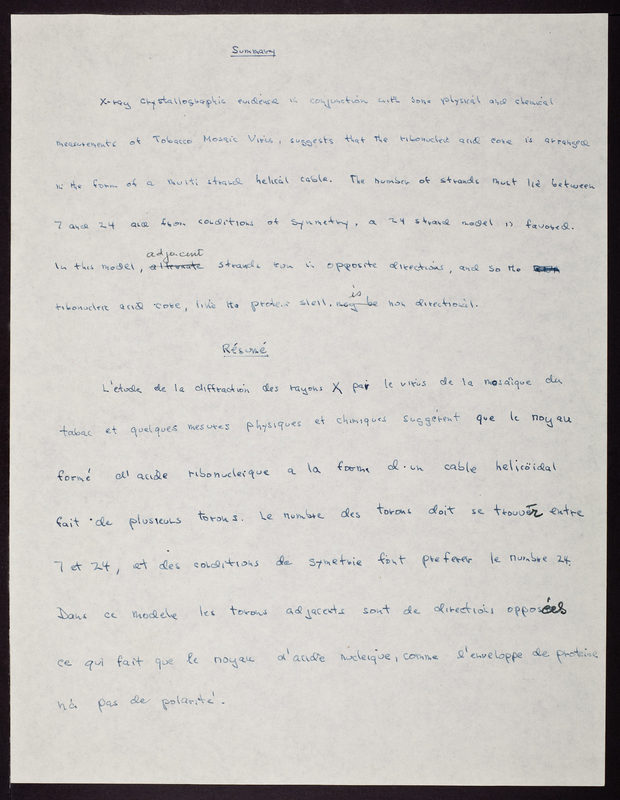 Summary
X-ray crystallographic evidence in conjunction with some physical and chemical
measurements of Tobacco Mosaic Virus, suggests that the ribonucleic acid core is arranged
in the form of a multi strand helical cable. The number of strands must lie between
7 and 24 and from conditions of symmetry, a 24 strand model is favored.
adjacent
In this model, alternate strands run in opposite directions, and so the
is
ribonucleic acid core, like the protein shell, may be non directional.
Résumé
L'étude de la diffraction des rayons X par le virus de la mosaïque du
tabac et quelques mesures physiques et chimiques suggérent que le noyau
formé d'acide ribonucleique a la forme d'un cable helicöidal
fait de plusieurs torons. Le nombre des torons doit se trouver entre
7 et 24, et des conditions de symetrie font preferer le nombre 24.
Dans ce modele les torons adjacents sont de directions opposées
ce qui fait que le noyau d'acide nucleique, comme l'enveloppe de proteine
n'a pas de polarité.